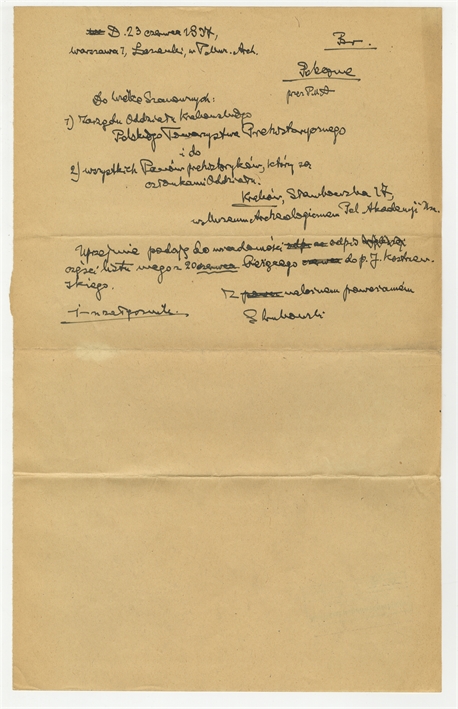 D. 23 czerwca 1937,
Warszawa 7, Łazienki, Pm. Arch.
Br.
Polecone
przez P.M.A
Do Wielce Szanownych:
1) Zarządu Oddziału Krakowskiego
Polskiego Towarzystwa Prehistorycznego
i do
2) wszystkich Panów prehistoryków, którzy są
członkami Oddziału.
Kraków, Sławkowska 17,
w Muzeum Archeologicznem Pol. Akademji Um.
Uprzejmie podaję do wiadomości odpis
części listu mego z 20 czerwca bieżącego do p. J. Kostrzew-
skiego.
Z należnem poważaniem
1 załącznik.
S Krukowski